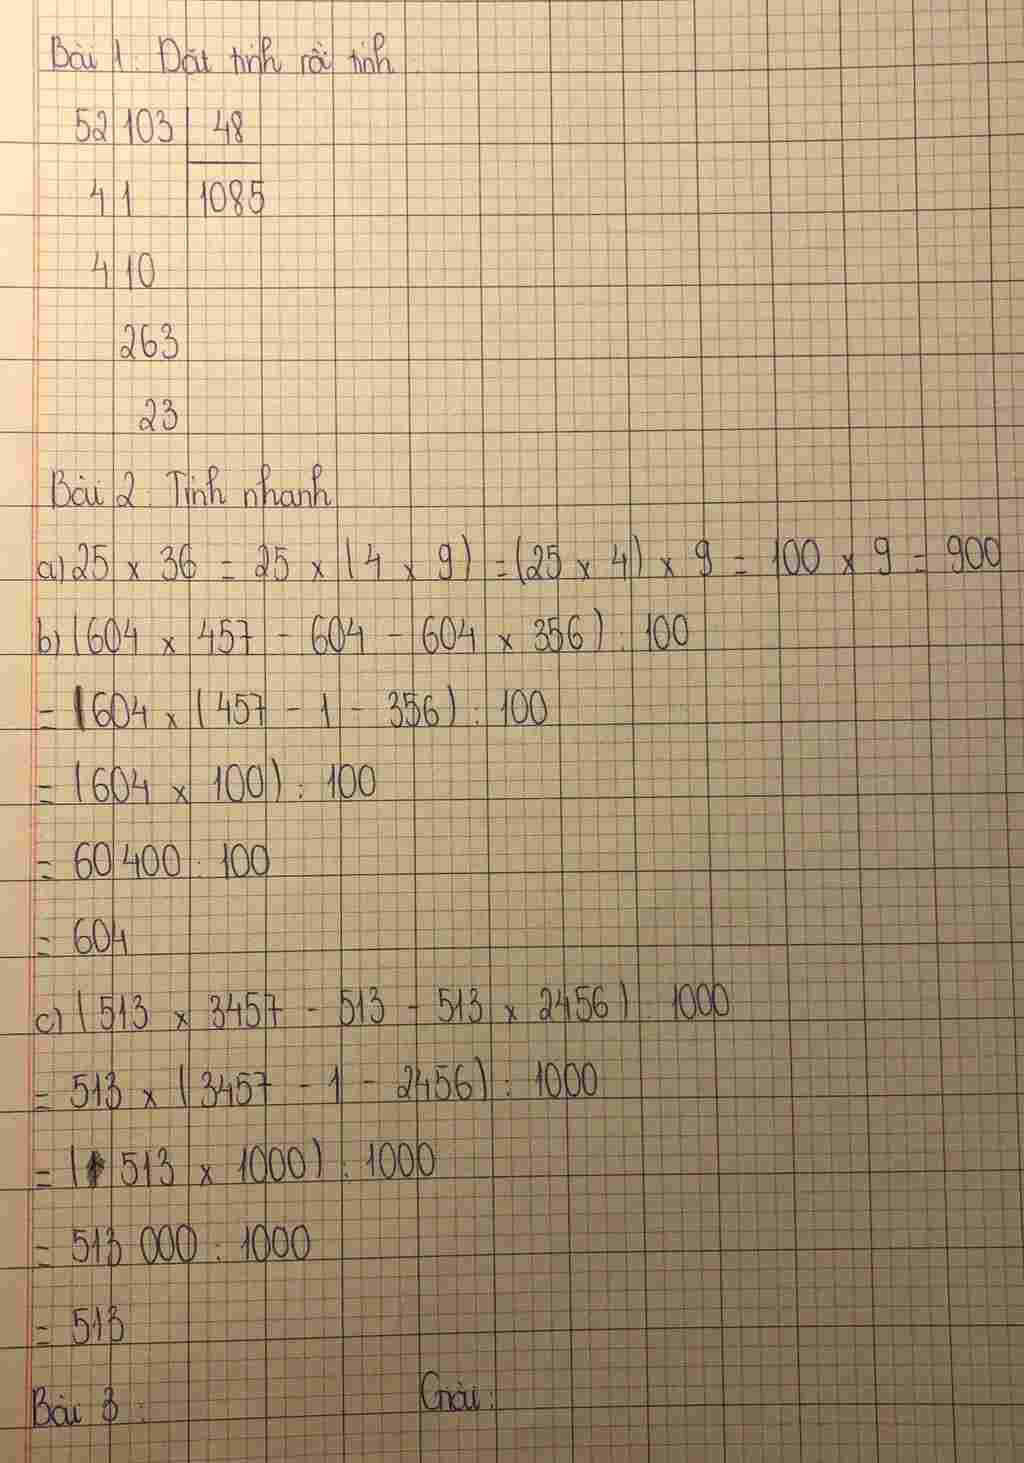 Bài 1: Đặt tính rồi tính
52103 48
41 1085
410
263
23
Bài 2: Tính nhanh
a) 25 x 36 = 25 x (4 x 9) = (25 x 4) x 9 = 100 x 9 = 900
b) (604 x 457 - 604 - 604 x 356) : 100
= (604 x (457 - 1 - 356) : 100
= (604 x 100) : 100
= 60400 : 100
= 604
c) (513 x 3457 - 513 - 513 x 2456) : 1000
= 513 x (3457 - 1 - 2456) : 1000
= (513 x 1000) : 1000
= 513 000 : 1000
= 513
Bài 3: Giải: